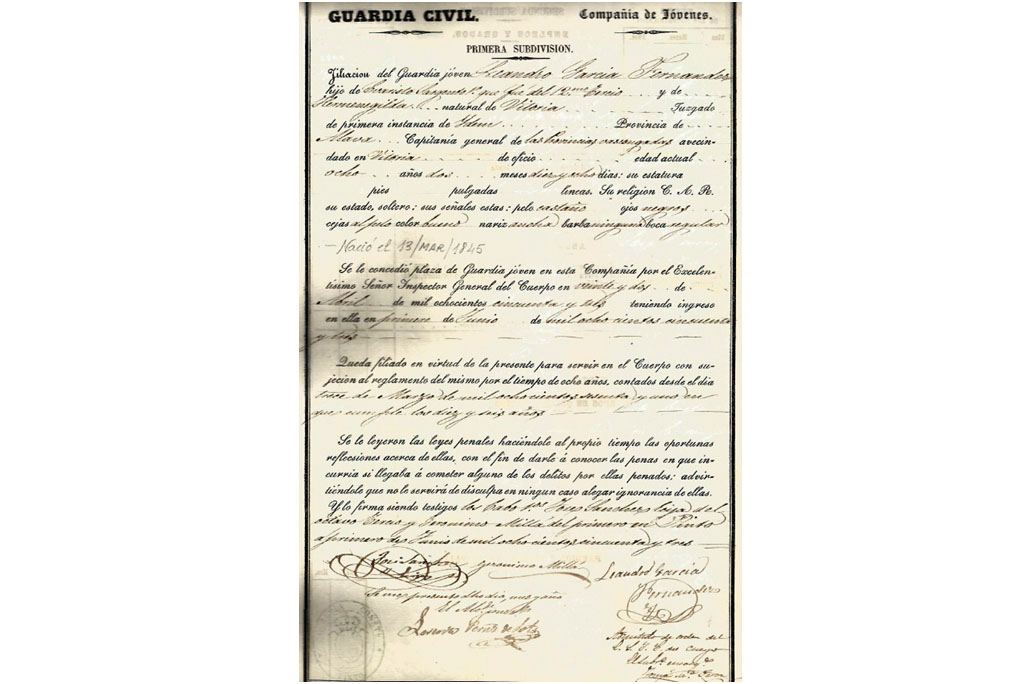 GUARDIA CIVIL. Compañía de Jóvenes.
PRIMERA SUBDIVISION.
Filiacion del Guardia jóven Leandro Garcia Fernandez
hijo de Sargento 1º que fué del 12mo Tercio y de
Hermenegilda natural de Vitoria Juzgado
de primera instancia de Idem Provincia de
Alava Capitanía general de las Provincias vascongadas avecin-
dado en Vitoria de oficio edad actual
ocho años dos meses diez y ocho dias: su estatura
pies pulgadas lineas. Su religion C. A. R.
su estado, soltero: sus señales estas: pelo castaño ojos negros
cejas al pelo color bueno nariz ancha barba ninguna boca regular
- Nació el 13/MAR/1845
Se le concedió plaza de Guardia jóven en esta Compañía por el Excelen-
tísimo Señor Inspector General del Cuerpo en veinte y dos de
Abril de mil ochocientos cincuenta y tres teniendo ingreso
en ella en primero de Junio de mil ocho cientos cincuenta
y tres
Queda filiado en virtud de la presente para servir en el Cuerpo con su-
jecion al reglamento del mismo por el tiempo de ocho años, contados desde el dia
trece de Marzo de mil ocho cientos sesenta y uno en
que cumple los diez y seis años
Se le leyeron las leyes penales haciéndole al propio tiempo las oportunas
reflecsiones acerca de ellas, con el fin de darle á conocer las penas en que in-
curria si llegaba á cometer alguno de los delitos por ellas penados; advir-
tiéndole que no le servirá de disculpa en ningun caso alegar ignorancia de ellas.
Y lo firma siendo testigos los Cabo 1os José Sanchez del
octavo Tercio y Geronimo Millá del primero en Pinto
a primero de Junio de mil ocho cientos cincuenta y tres
Geronimo Millá Leandro Garcia
Fernandez
dia, mes y año
El